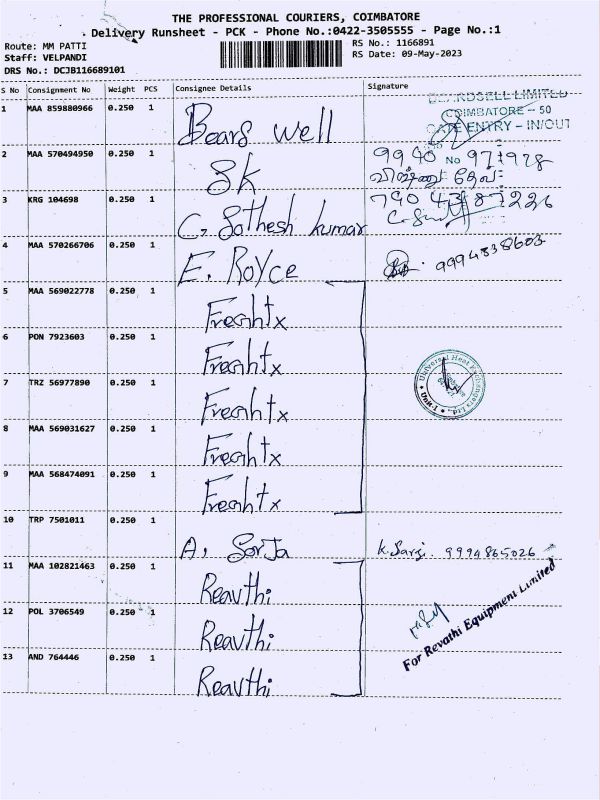 THE PROFESSIONAL COURIERS, COIMBATORE
Delivery Runsheet - PCK - Phone No.:0422-3505555 - Page No.:1
Route: MM PATTI
Staff: VELPANDI
DRS No.: DCJB116689101
RS No.: 1166891
RS Date: 09-May-2023
S No Consignment No Weight PCS Consignee Details Signature
1 MAA 859880966 0.250 1 Bears well
LIMITED
COIMBATORE - 50
GATE ENTRY - IN/OUT
2 MAA 570494950 0.250 1 SK
No
3 KRG 104698 0.250 1 C. Sothesh kumar
4 MAA 570266706 0.250 1 E. Royce 9994338603
5 MAA 569022778 0.250 1 Freahtx
6 PON 7923603 0.250 1 Freahtx
7 TRZ 56977890 0.250 1 Freahtx
Universal Heat Exchangers Ltd. Unit-I
8 MAA 569031627 0.250 1 Freahtx
9 MAA 568474091 0.250 1 Freahtx
10 TRP 7501011 0.250 1 A. Sorja K. Sarji. 9994865026
11 MAA 102821463 0.250 1 Reavthi
12 POL 3706549 0.250 1 Reavthi
For Revathi Equipment Limited
13 AND 764446 0.250 1 Reavthi